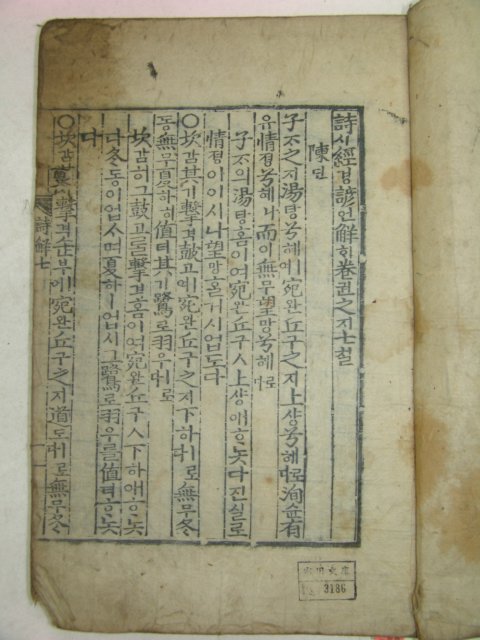 詩시經경諺언解ᄒᆡ卷권之지七칠
陳딘
子ᄌᆞ之지湯탕兮혜여宛완丘구之지上샹兮혜로다洵슌有
유情졍兮혜나而이無무望망兮혜로다
子ᄌᆞ의湯탕홈이여宛완丘구ㅅ上샹애ᄒᆞ놋다진실로
情졍이이시나望망홀거시업도다
○坎감其기擊격鼓고여宛완丘구之지下하ㅣ로다無무冬
동無무夏하히値티其기鷺로羽우ㅣ로다
坎감히그鼓고를擊격홈이여宛완丘구ㅅ下하애ᄒᆞ놋
다冬동이업스며夏하ㅣ업시그鷺로羽우를値티ᄒᆞ놋
다
○坎감其기擊격缶부여宛완丘구之지道도ㅣ로다無무冬
詩解七
3186